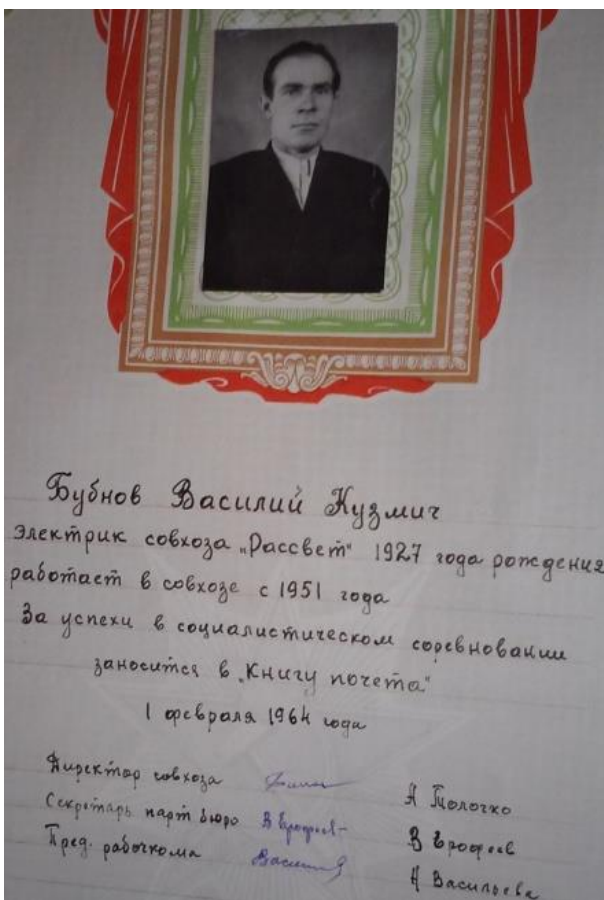 Бубнов Василий Кузмич
Электрик совхоза „Рассвет" 1927 года рождения
работает в совхозе с 1951 года
За успехи в социалистическом соревновании
заносится в „Книгу почета"
1 февраля 1964 года
Директор совхоза А Толочко
Секретарь парт бюро В Ерофеев В Ерофеев
Пред. рабочкома Н Васильева